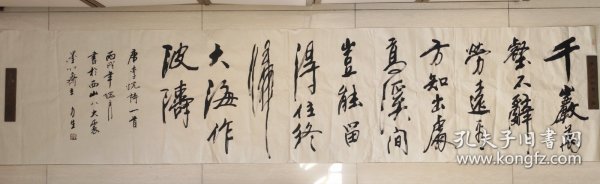 千巖萬
壑不辭
勞遠看
方知出處
高溪澗
豈能留
得住終
歸
大海作
波濤
唐李忱诗一首
丙戌年
書於西山八大處
孔夫子旧书网
www.kongfz.com